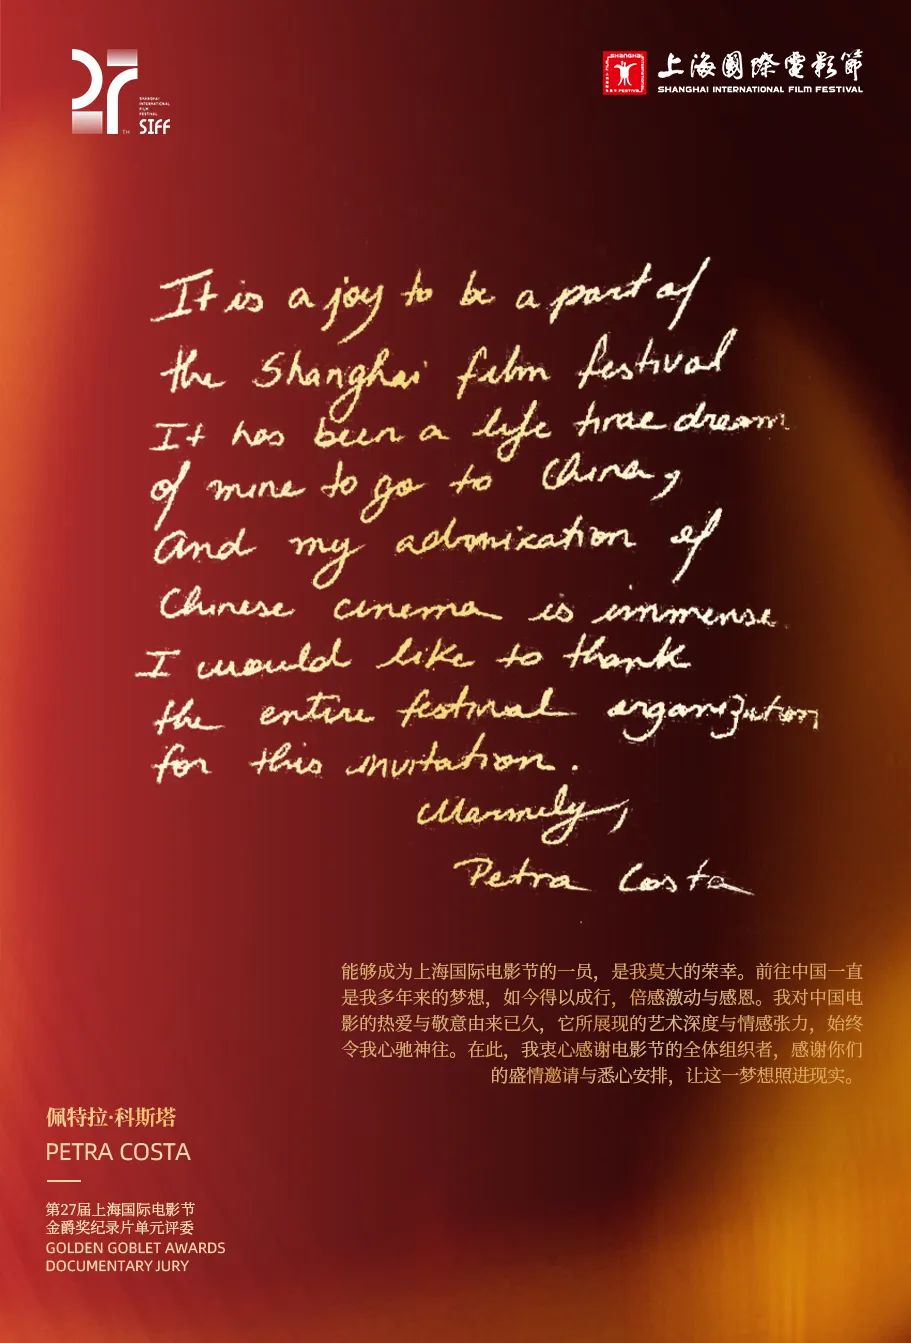 SHANGHAI
INTERNATIONAL
FILM
FESTIVAL
TM
SIFF
上海國際電影節
SHANGHAI INTERNATIONAL FILM FESTIVAL
It is a joy to be a part of
the Shanghai film festival
It has been a life time dream
of mine to go to China,
And my admiration of
Chinese cinema is immense
I would like to thank
the entire festival organization
for this invitation.
Warmly,
Petra Costa
能够成为上海国际电影节的一员，是我莫大的荣幸。前往中国一直
是我多年来的梦想，如今得以成行，倍感激动与感恩。我对中国电
影的热爱与敬意由来已久，它所展现的艺术深度与情感张力，始终
令我心驰神往。在此，我衷心感谢电影节的全体组织者，感谢你们
的盛情邀请与悉心安排，让这一梦想照进现实。
佩特拉·科斯塔
PETRA COSTA
第27届上海国际电影节
金爵奖纪录片单元评委
GOLDEN GOBLET AWARDS
DOCUMENTARY JURY